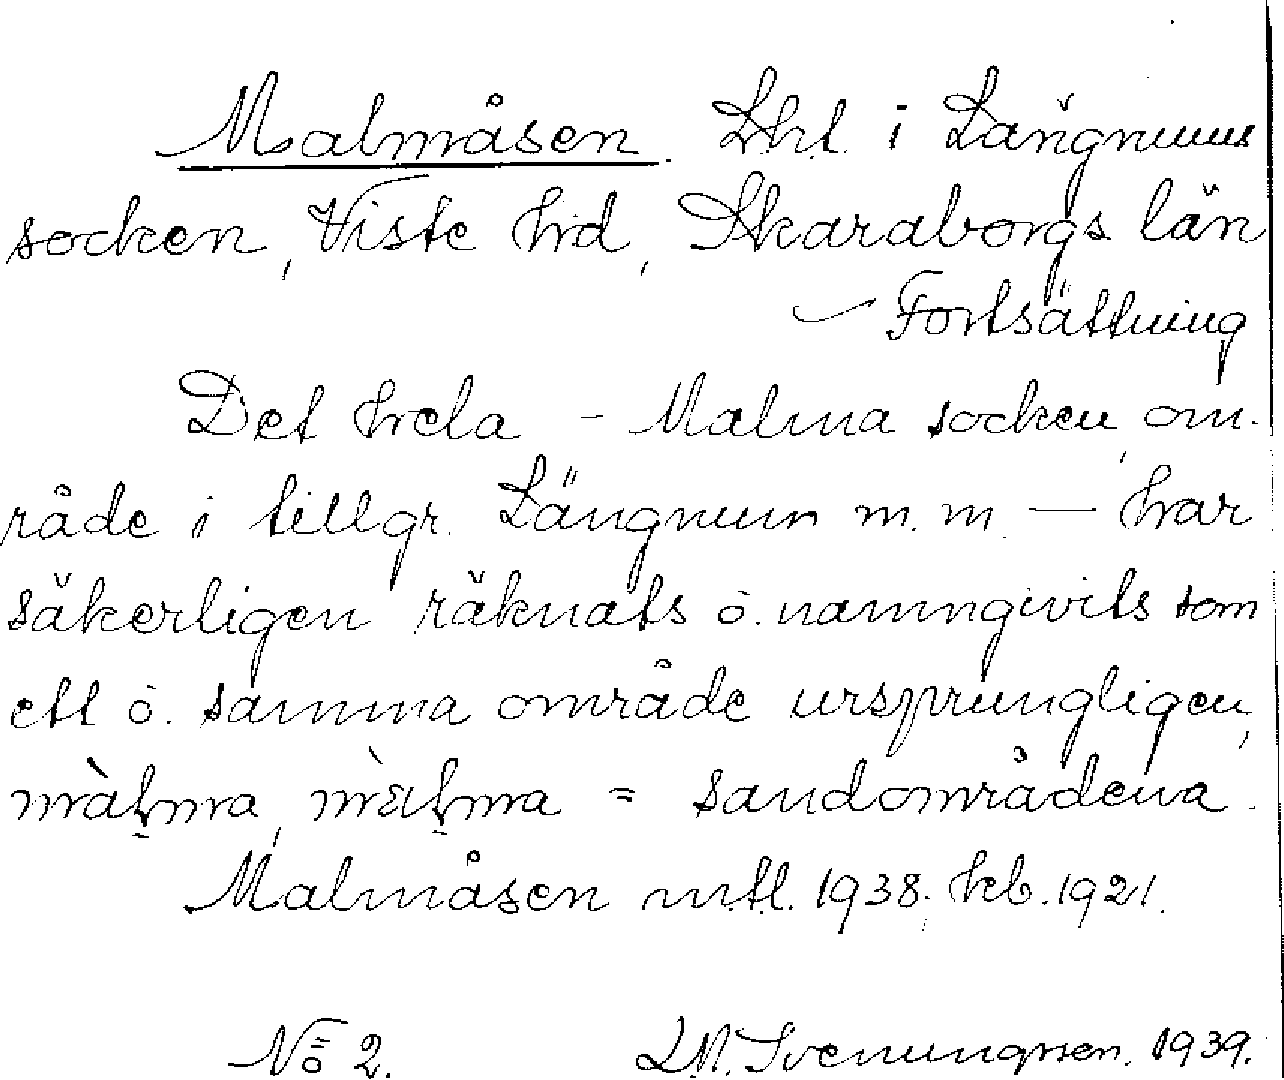 Malmåsen. Lht. i Längnums
socken, Viste hrd, Skaraborgs län
— Fortsättning
Det hela - Malma socken, om-
råde i tillgr. Längnum m. m — har
säkerligen räknats o. namngivits som
ett o. samma område ursprungligen,
= sandområdena.
Malmåsen mtl. 1938. kb. 1921.
No 2. Svenungsson. 1939.